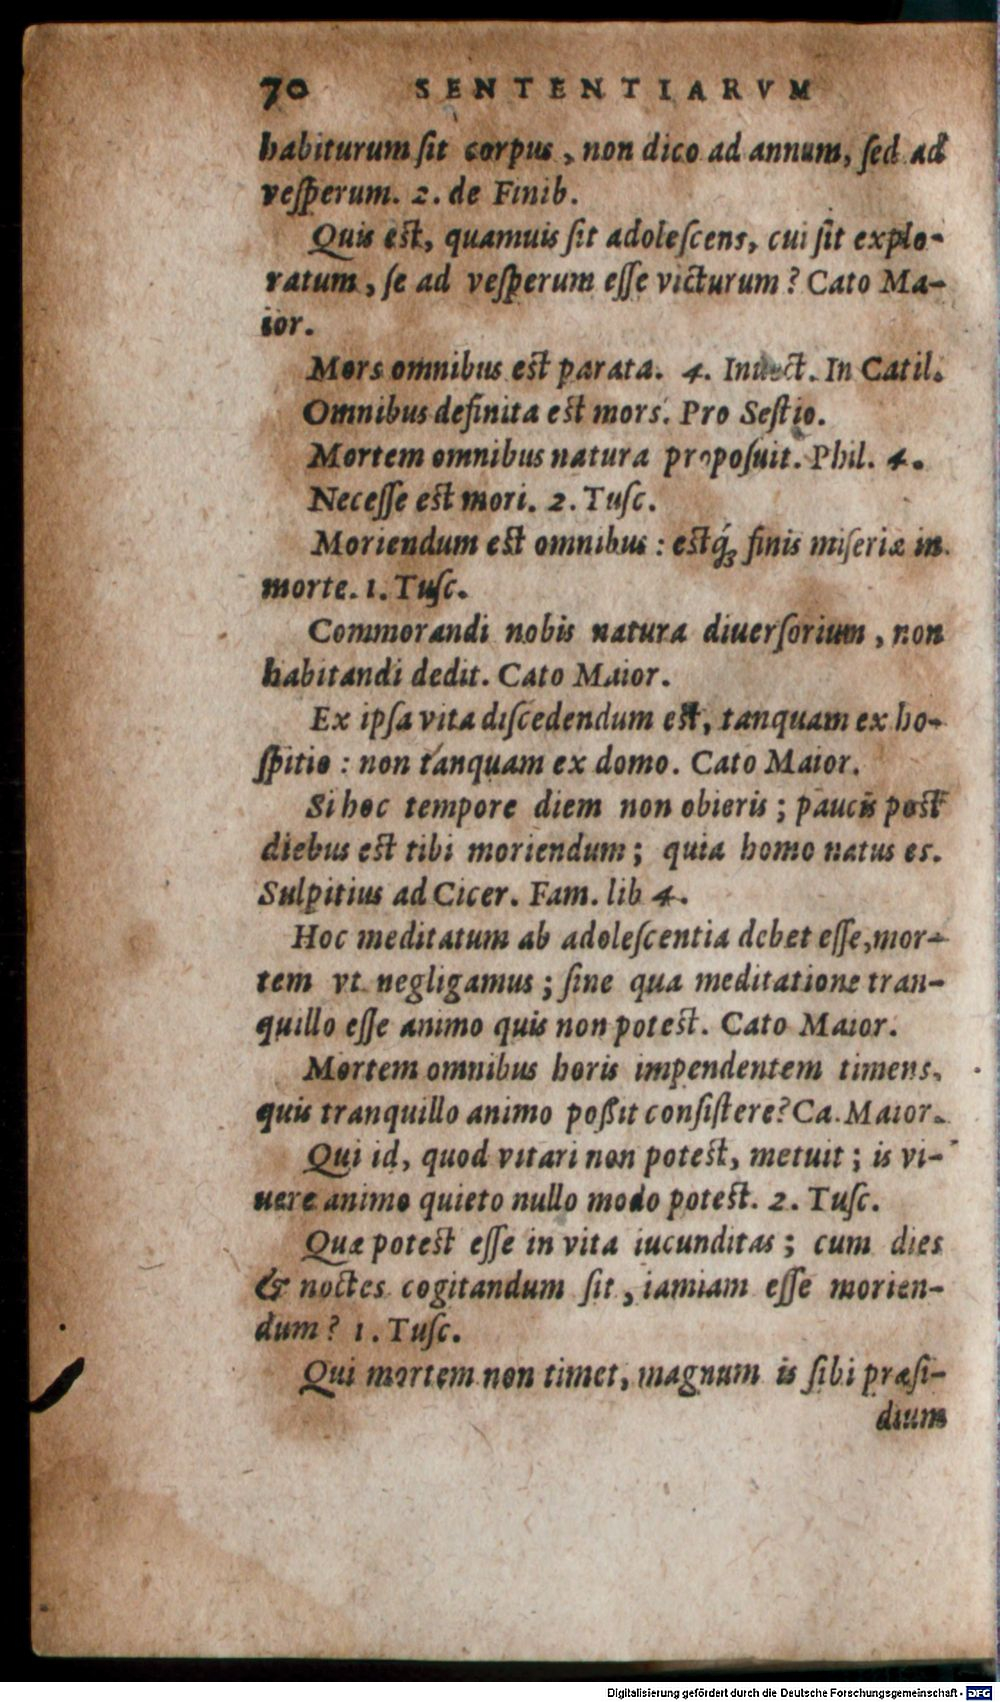 70 SENTENTIARVM
habiturum ſit corpus, non dico ad annum, ſed ad
veſperum. 2. de Finib.
Quis est, quamuis ſit adoleſcens, cui ſit explo-
ratum, ſe ad veſperum eſſe victurum? Cato Ma-
ior.
Mors omnibus est parata. 4. Inuect. In Catil.
Omnibus definita est mors. Pro Seſtio.
Mortem omnibus natura propoſuit. Phil. 4.
Neceſſe est mori. 2. Tuſc.
Moriendum est omnibus: estq́; finis miſeriæ in
morte. 1. Tuſc.
Commorandi nobis natura diuerſorium, non
habitandi dedit. Cato Maior.
Ex ipſa vita diſcedendum est, tanquam ex ho-
ſpitio: non tanquam ex domo. Cato Maior.
Si hoc tempore diem non obieris; paucis post
diebus est tibi moriendum; quia homo natus es.
Sulpitius ad Cicer. Fam. lib 4.
Hoc meditatum ab adoleſcentia debet eſſe, mor-
tem vt negligamus; ſine qua meditatione tran-
quillo eſſe animo quis non potest. Cato Maior.
Mortem omnibus horis impendentem timens,
quis tranquillo animo poßit conſiſtere? Ca. Maior.
Qui id, quod vitari non potest, metuit; is vi-
uere animo quieto nullo modo potest. 2. Tuſc.
Quæ potest eſſe in vita iucunditas; cum dies
& noctes cogitandum ſit, iamiam eſſe morien-
dum? 1. Tuſc.
Qui mortem non timet, magnum is ſibi præſi-
dium
Digitalisierung gefördert durch die Deutsche Forschungsgemeinschaft - DFG